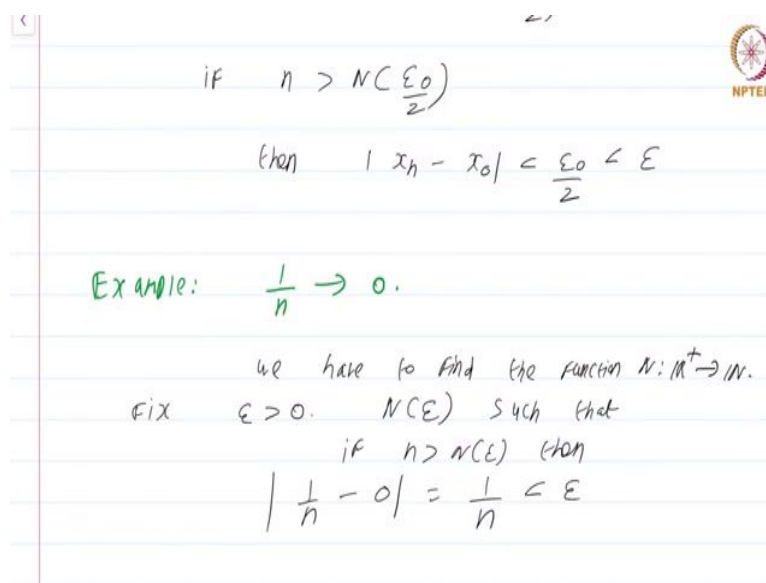 if n > N(ε₀/2)
NPTEL
then | xₙ - x₀| < ε₀/2 < ε
Example: 1/n → 0.
we have to find the function N: ℝ⁺ → ℕ.
Fix ε > 0. N(ε) such that
if n > N(ε) then
| 1/n - 0| = 1/n < ε